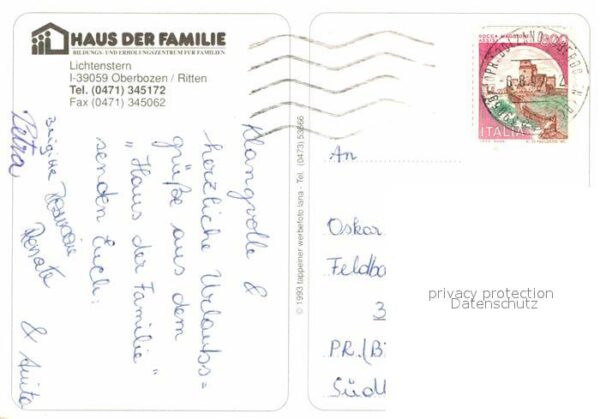 HAUS DER FAMILIE
BILDUNGS- UND ERHOLUNGSZENTRUM FÜR FAMILIEN
Lichtenstern
I-39059 Oberbozen / Ritten
Tel. (0471) 345172
Fax (0471) 345062
Klangvolle &
herzliche Urlaubs=
grüße aus dem
"Haus der Familie"
senden Euch:
Brigitte
Petra
Renate
& Anita
© 1993 tappeiner werbefoto lana - Tel. (0473) 53666
ITALIA
An
Oskar
Feldba
3
PR.(B
Südl
privacy protection
Datenschutz